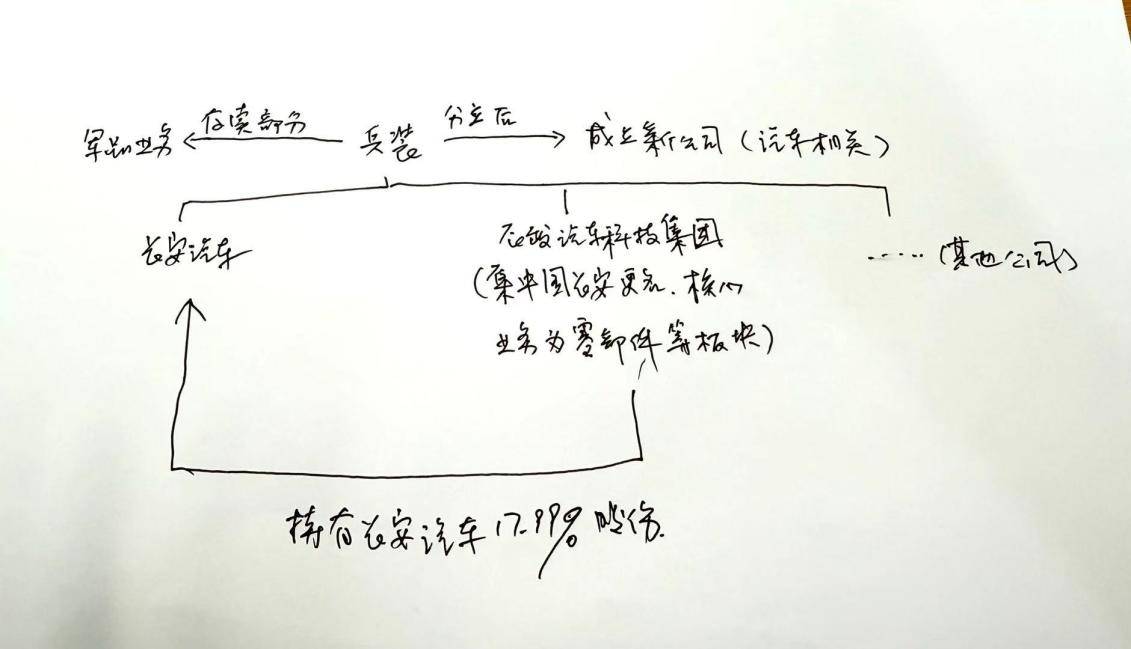 军品业务 存续部分 兵装 分立后 成立新公司(汽车相关)
长安汽车
辰致汽车科技集团
(原中国长安更名、核心
业务为零部件等板块)
……(其他公司)
持有长安汽车17.99%股份.